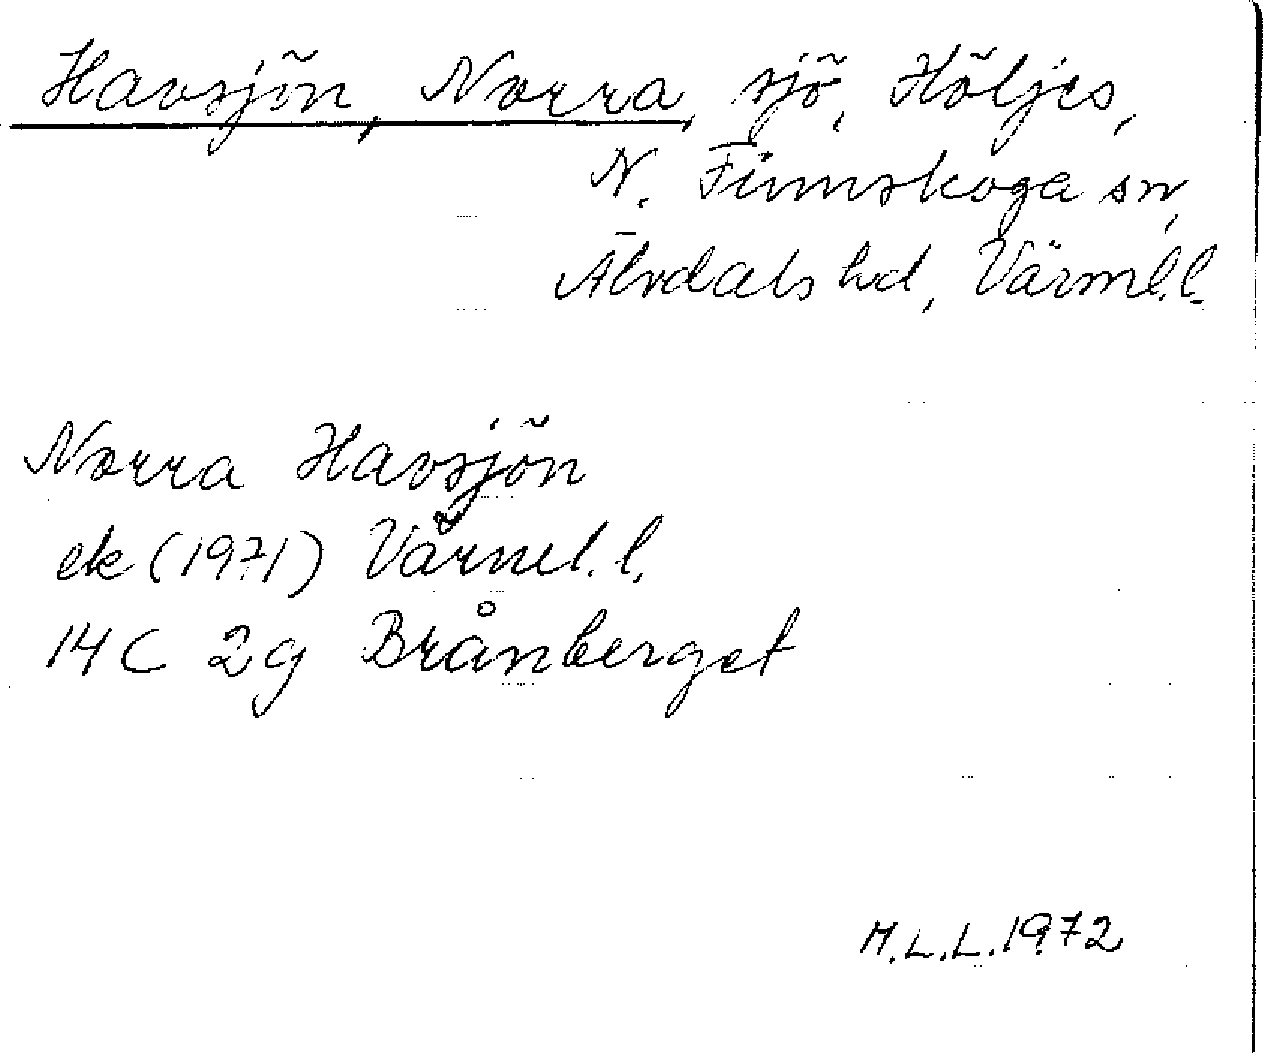 Havsjön, Norra, sjö, Höljes,
N. Finnskoga sn,
Älvdals hd, Värml.l.
Norra Havsjön
ek (1971) Värml.l.
14C 2g Brånberget
M.L.L. 1972